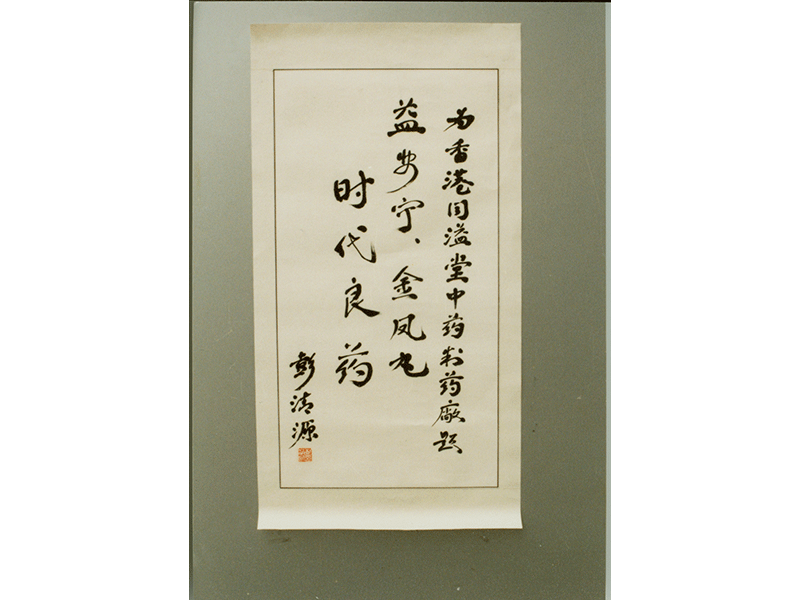 为香港同溢堂中药制药廠题
益安宁、金凤丸
时代良药
彭清源